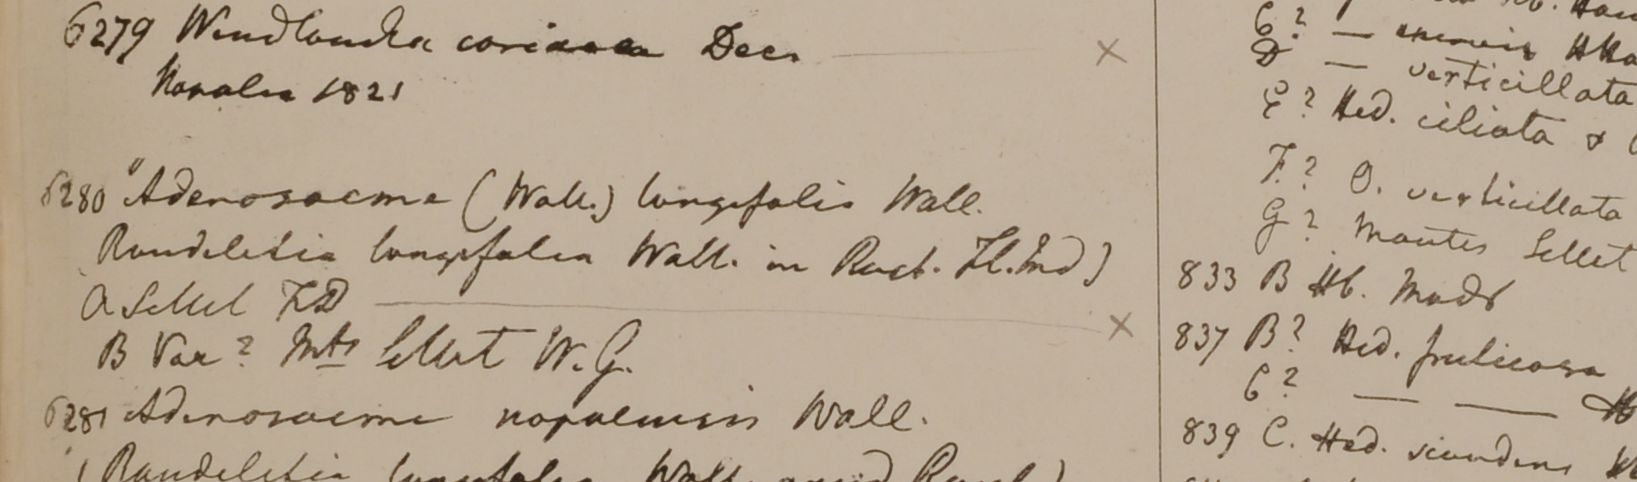 6279 Wendlandia coriacea Dec.
Napalia 1821
6280 "Adenosacme (Wall.) longifolia Wall.
Rondeletia longifolia Wall. in Roxb. Fl. Ind)
A Sillet F.D
B Var? Mts Sillet W.G.
6281 Adenosacme napalensis Wall.
(Rondeletia longifolia Wall. apud Roxb)
C? —
D — verticillata
E? Hed. ciliata &
F? O. verticillata
G? Montes Sillet
833 B Hb. Madr
837 B? Hed. fruticosa
C? — —
839 C. Hed. scandens